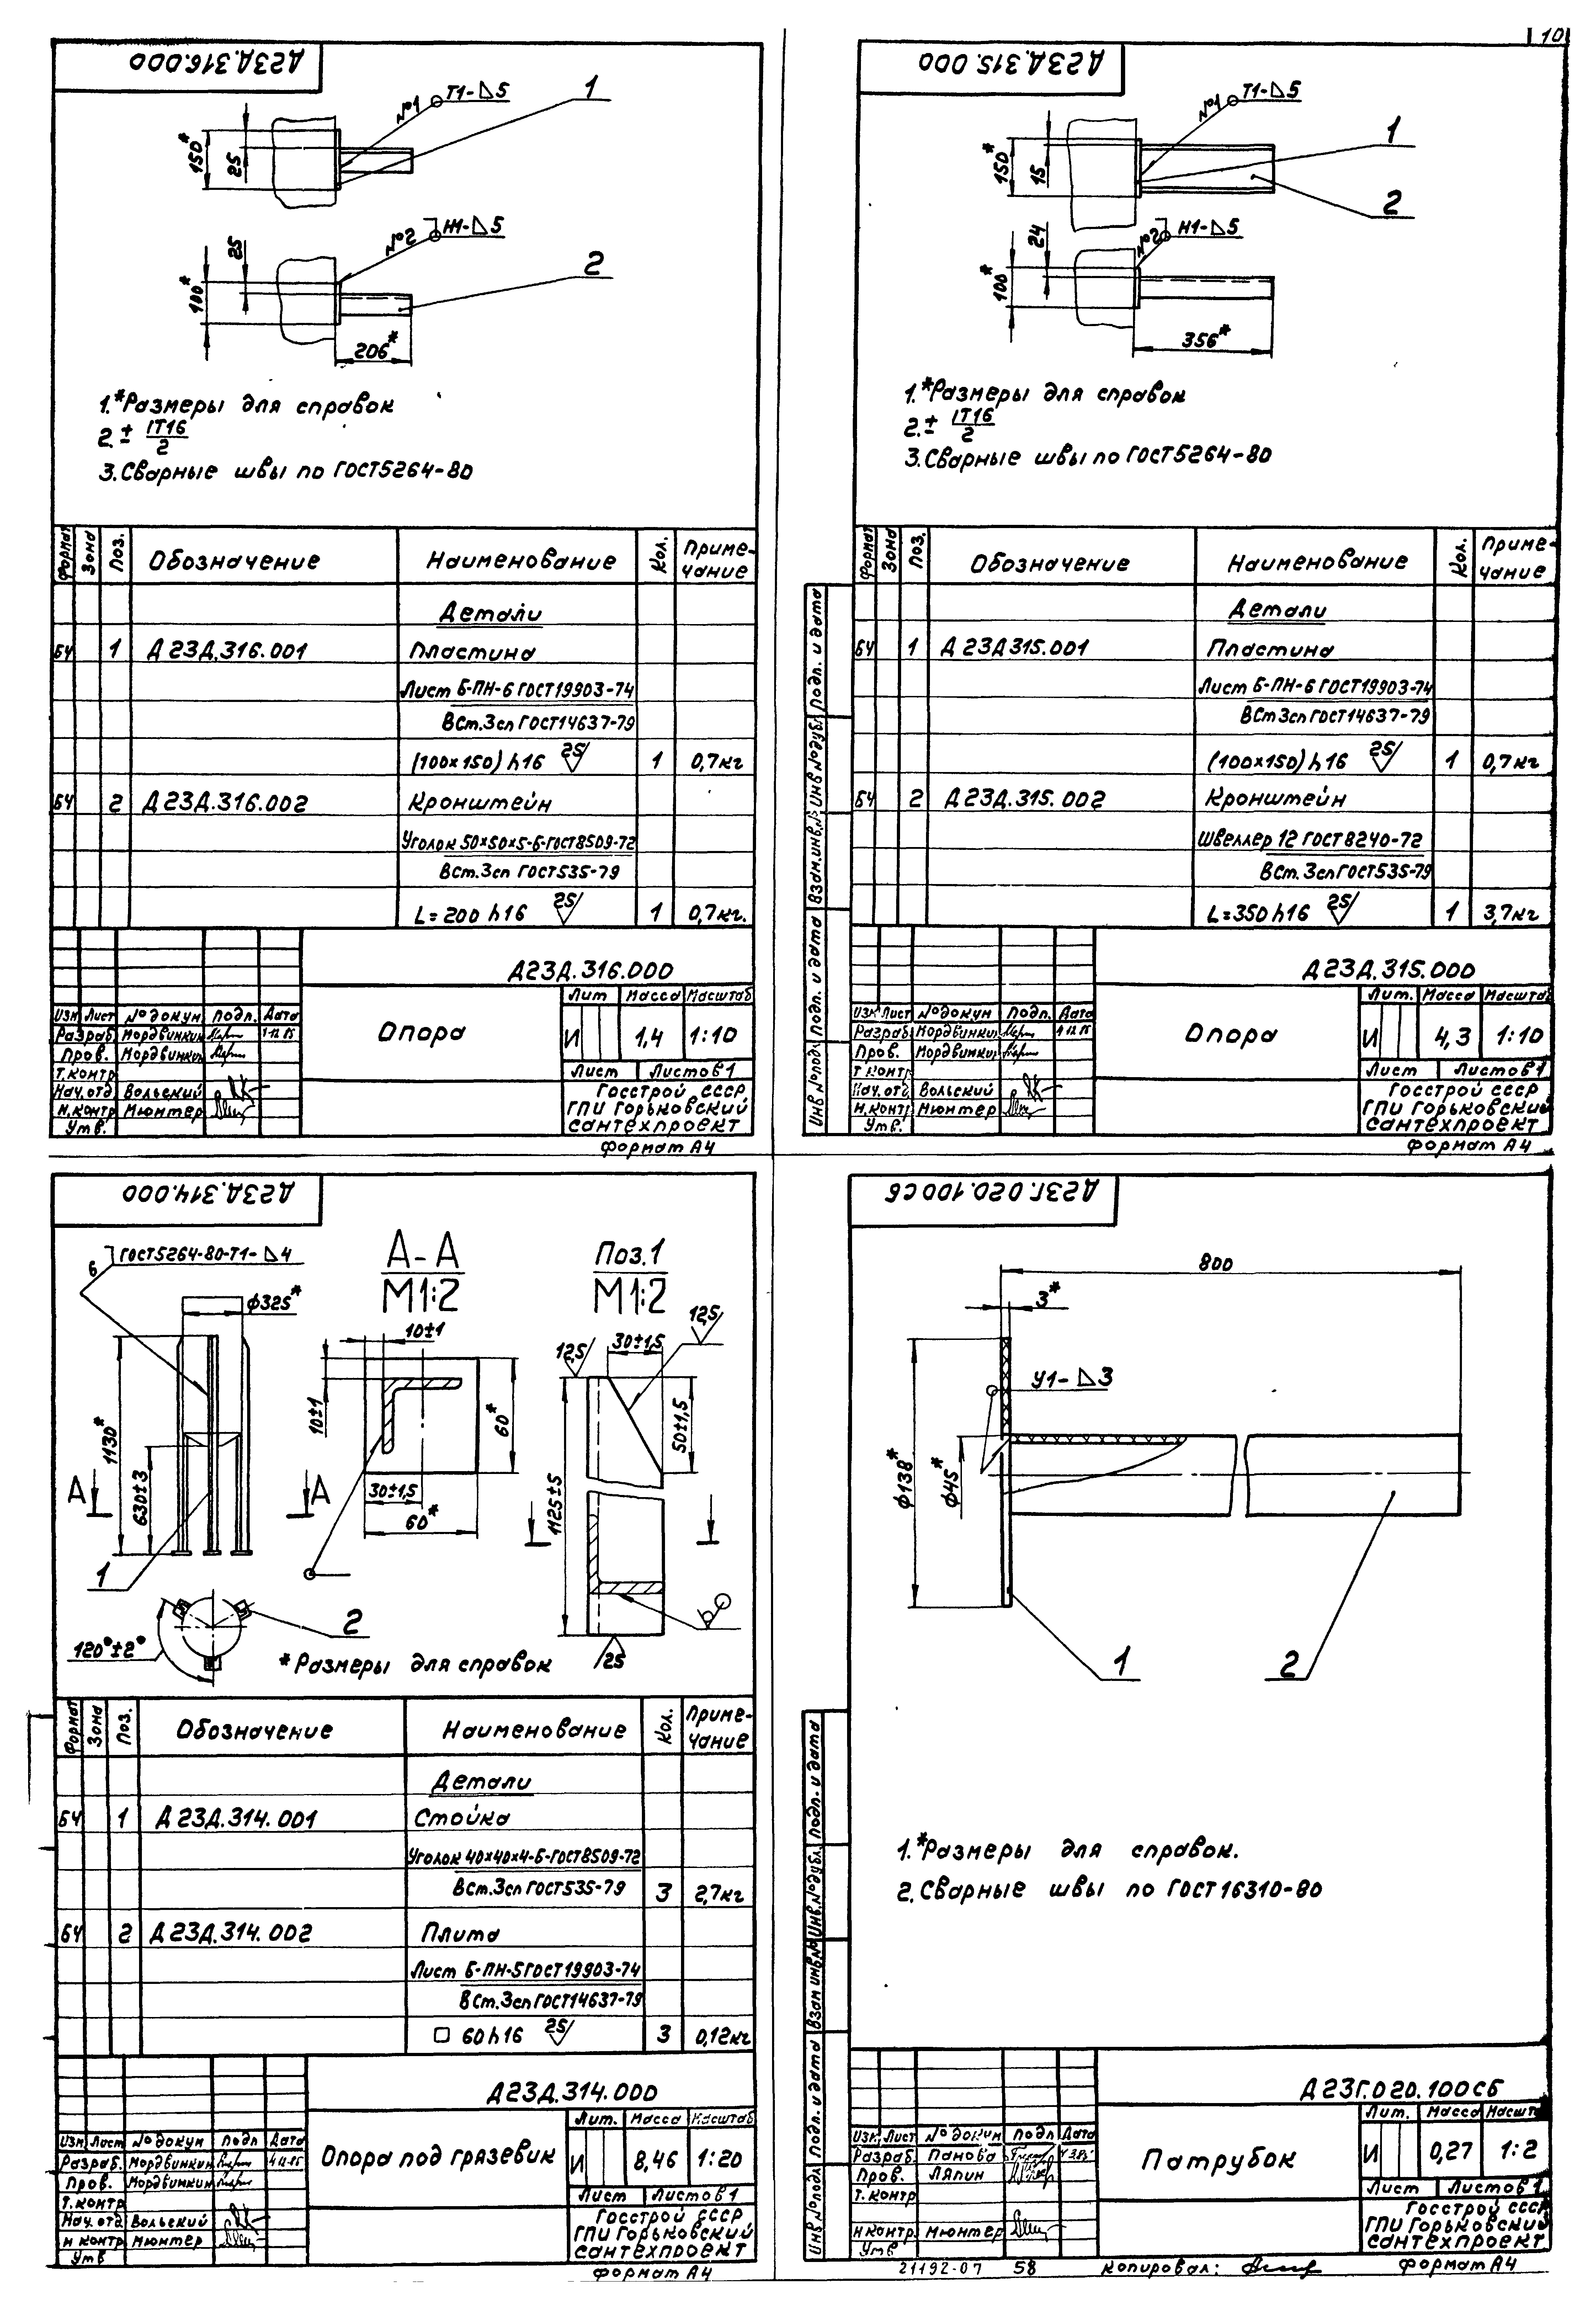 10
Д23Д.316.000
№1 Т1-⊿5
1
150*
25
№2 Н1-⊿5
2
25
100*
206*
1.*Размеры для справок
2. ± IT16/2
3. Сварные швы по ГОСТ 5264-80
Формат Зона Поз. Обозначение Наименование Кол. Приме-чание
Детали
БЧ 1 Д23Д.316.001 Пластина
Лист Б-ПН-6 ГОСТ 19903-74
ВСт.3сп ГОСТ 14637-79
(100×150) h16 25 1 0,7кг
БЧ 2 Д23Д.316.002 Кронштейн
Уголок 50×50×5-Б-ГОСТ 8509-72
ВСт.3сп ГОСТ 535-79
L=200 h16 25 1 0,7кг.
Д23Д.316.000
Изм Лист № докум Подп. Дата
Разраб. Мордвинкин
Пров. Мордвинкин
Т.контр
Нач.отд Вольский
Н.контр Мюнтер
Утв.
Опора
Лит Масса Масштаб
И 1,4 1:10
Лист Листов 1
Госстрой СССР
ГПИ Горьковский
сантехпроект
Формат А4
Д23Д.315.000
№1 Т1-⊿5
1
2
150*
15
№2 Н1-⊿5
24
100*
356*
1.*Размеры для справок
2. ± IT16/2
3. Сварные швы по ГОСТ 5264-80
Формат Зона Поз. Обозначение Наименование Кол. Приме-чание
Детали
БЧ 1 Д23Д315.001 Пластина
Лист Б-ПН-6 ГОСТ 19903-74
ВСт3сп ГОСТ 14637-79
(100×150) h16 25 1 0,7кг
БЧ 2 Д23Д.315.002 Кронштейн
Швеллер 12 ГОСТ 8240-72
ВСт.3сп ГОСТ 535-79
L=350 h16 25 1 3,7кг
Подп. и дата
Инв № дубл.
Взам.инв.№
Подп. и дата
Инв № подл
Д23Д.315.000
Изм Лист № докум Подп. Дата
Разраб. Мордвинкин
Пров. Мордвинкин
Т контр
Нач.отд. Вольский
Н.контр. Мюнтер
Утв.
Опора
Лит. Масса Масштаб
И 4,3 1:10
Лист Листов 1
Госстрой СССР
ГПИ Горьковский
сантехпроект
Формат А4
Д23Д.314.000
ГОСТ 5264-80-Т1-⊿4
6
ф325*
1130*
630±3
А А
1
120°±2°
2
А-А
М1:2
10±1
10±1
60*
30±1,5
60*
Поз.1
М1:2
12,5
30±1,5
12,5
50±1,5
1125±5
25
*Размеры для справок
Формат Зона Поз. Обозначение Наименование Кол. Приме-чание
Детали
БЧ 1 Д23Д.314.001 Стойка
Уголок 40×40×4-Б-ГОСТ 8509-72
ВСт.3сп ГОСТ 535-79 3 2,7кг
БЧ 2 Д23Д.314.002 Плита
Лист Б-ПН-5 ГОСТ 19903-74
ВСт.3сп ГОСТ 14637-79
□ 60 h16 25 3 0,12кг
Д23Д.314.000
Изм. Лист № докум Подп Дата
Разраб. Мордвинкин
Пров. Мордвинкин
Т.контр
Нач.отд Вольский
Н контр Мюнтер
Утв
Опора под грязевик
Лит. Масса Масштаб
И 8,46 1:20
Лист Листов 1
Госстрой СССР
ГПИ Горьковский
сантехпроект
Формат А4
Д23Г.020.100СБ
800
3*
У1-⊿3
ф138*
ф45*
1
2
1.*Размеры для справок.
2. Сварные швы по ГОСТ 16310-80
Подп. и дата
Инв.№ дубл.
Взам инв.№
Подп. и дата
Инв № подл
Д23Г.020.100СБ
Изм. Лист № докум Подп Дата
Разраб. Панова
Пров. Ляпин
Т.контр
Н контр. Мюнтер
Утв
Патрубок
Лит. Масса Масштаб
И 0,27 1:2
Лист Листов 1
Госстрой СССР
ГПИ Горьковский
сантехпроект
21192-07 58 Копировал: Формат А4